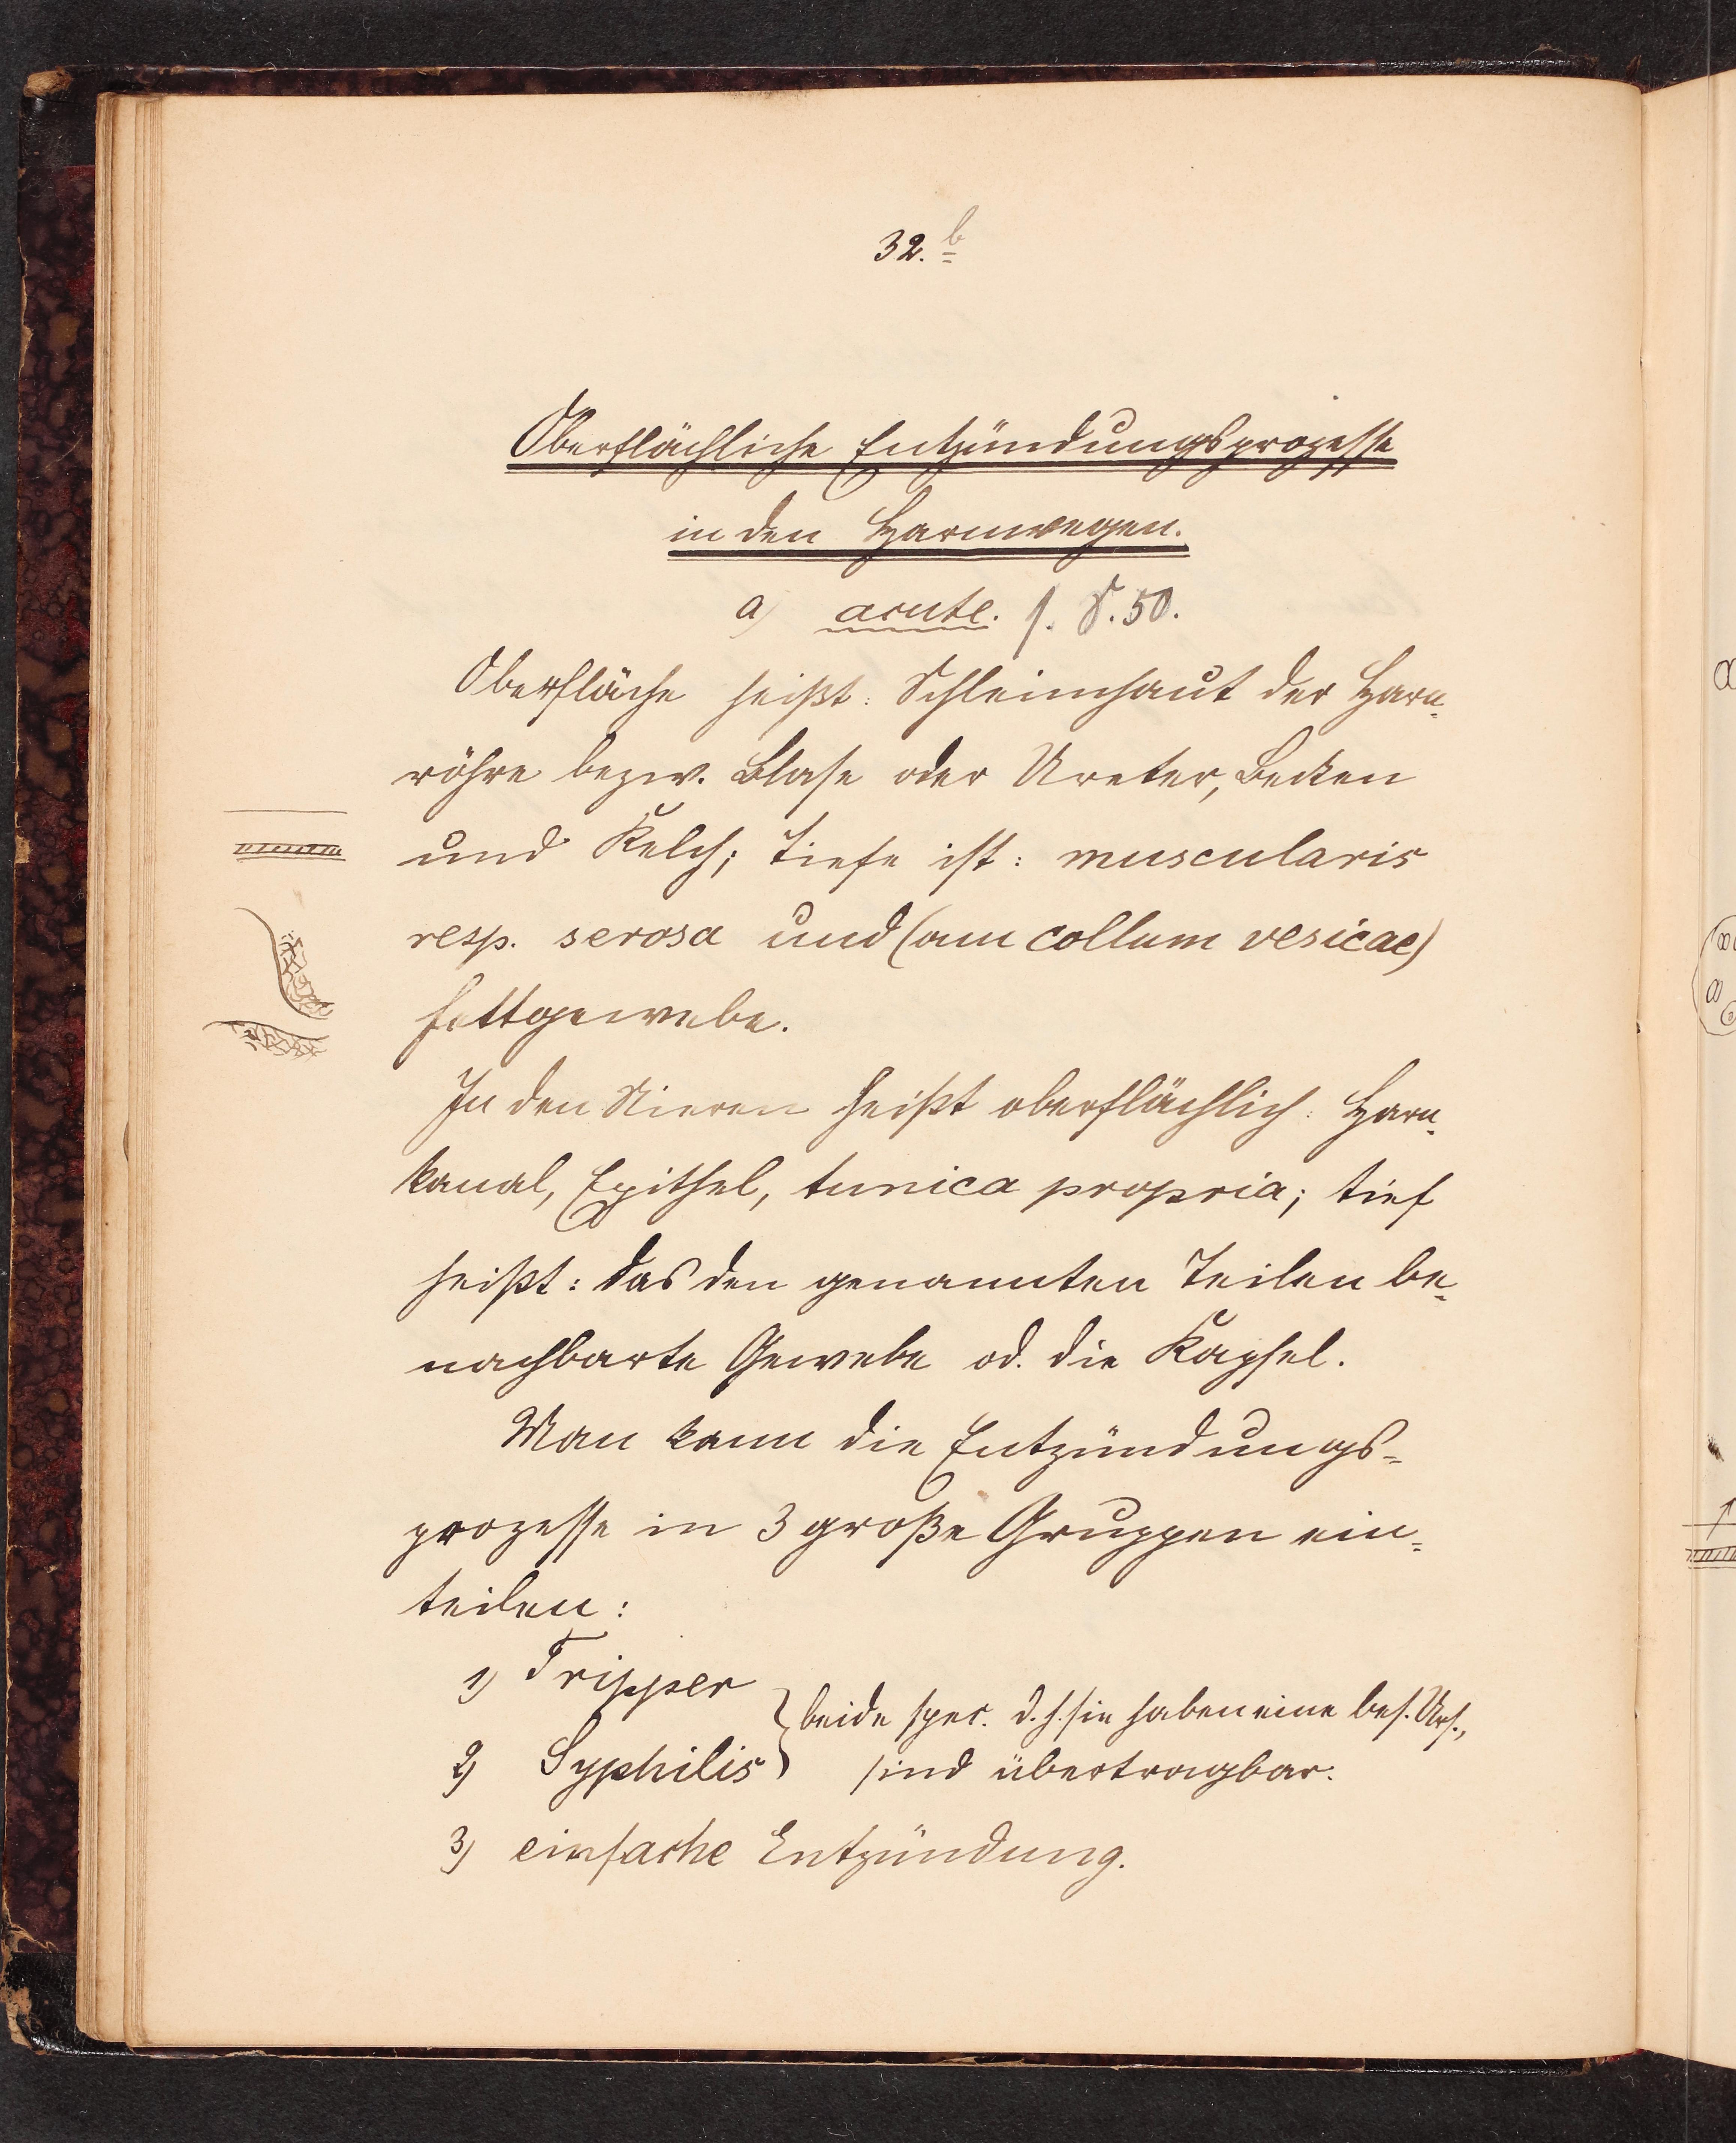 32. b
Oberflächliche Entzündungsprozesse
in den Harnwegen.
a) acute. s. S. 50.
Oberfläche heißt: Schleimhaut der Harn-
röhre bezw. Blase oder Ureter, Becken
und Kelch; Tiefe ist: muscularis
resp. serosa und (am collum vesicae)
Fettgewebe.
In den Nieren heißt oberflächlich: Harn-
kanal, Epithel, tunica propria; tief
heißt: das den genannten Teilen be-
nachbarte Gewebe od. die Kapsel.
Man kann die Entzündungs-
prozesse in 3 große Gruppen ein-
teilen:
1) Tripper
beide spec. d. h. sie haben eine bes. Urs.,
2) Syphilis
sind übertragbar.
3) einfache Entzündung.